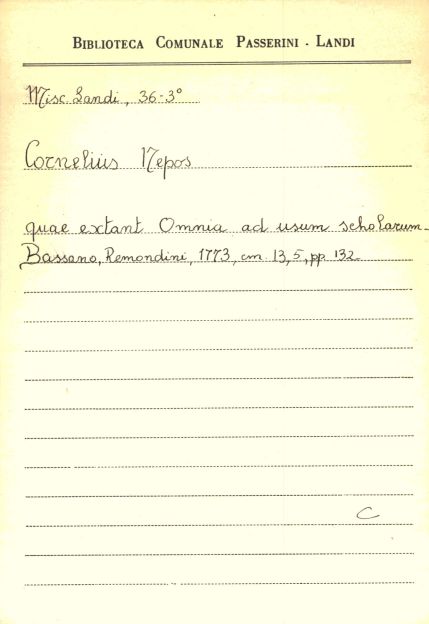 BIBLIOTECA COMUNALE PASSERINI - LANDI
Misc. Landi, 36-3°
Cornelius Nepos
quae extant Omnia ad usum scholarum-
Bassano, Remondini, 1773, cm 13,5, pp 132.
C